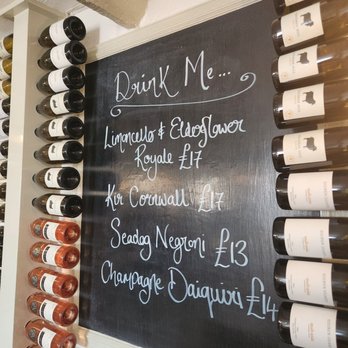 Drink Me...
Limoncello & Elderflower
Royale £17
Kir Cornwall £17
Seadog Negroni £13
Champagne Daiquiris £14